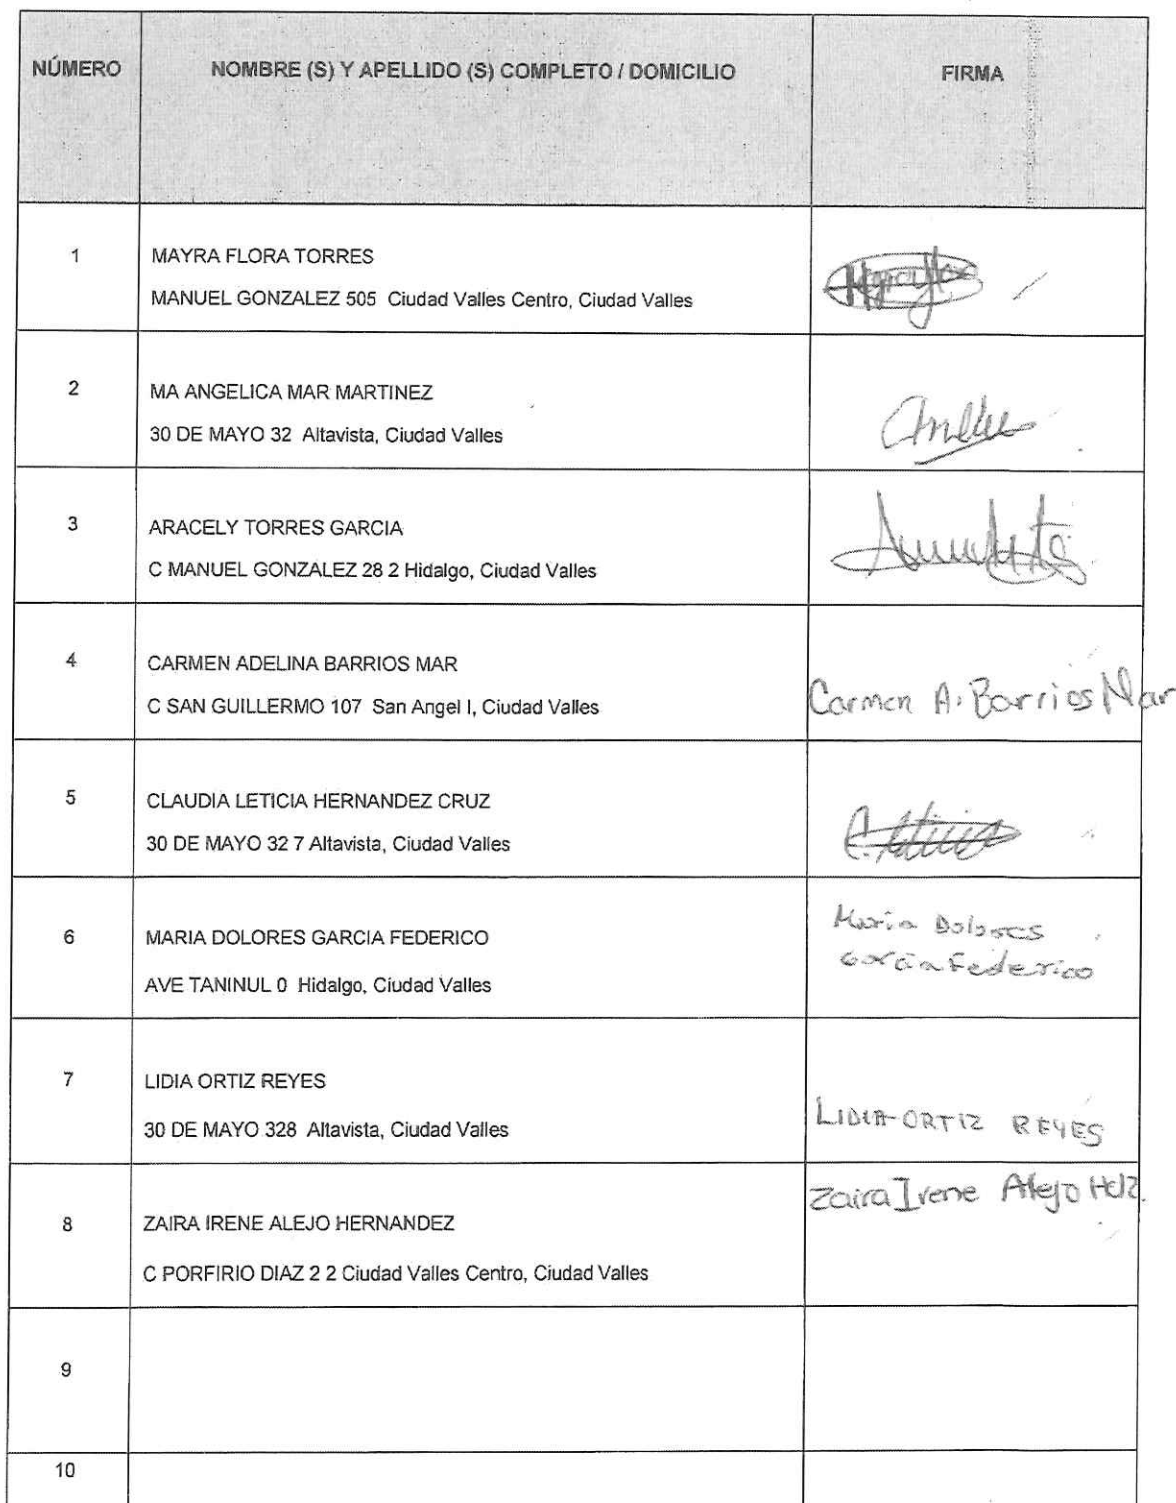 NÚMERO NOMBRE (S) Y APELLIDO (S) COMPLETO / DOMICILIO FIRMA
1 MAYRA FLORA TORRES
MANUEL GONZALEZ 505 Ciudad Valles Centro, Ciudad Valles
2 MA ANGELICA MAR MARTINEZ
30 DE MAYO 32 Altavista, Ciudad Valles
3 ARACELY TORRES GARCIA
C MANUEL GONZALEZ 28 2 Hidalgo, Ciudad Valles
4 CARMEN ADELINA BARRIOS MAR
C SAN GUILLERMO 107 San Angel I, Ciudad Valles
Carmen A. Barrios Mar
5 CLAUDIA LETICIA HERNANDEZ CRUZ
30 DE MAYO 32 7 Altavista, Ciudad Valles
C. Leticia
6 MARIA DOLORES GARCIA FEDERICO
AVE TANINUL 0 Hidalgo, Ciudad Valles
Maria Dolores
Garcia Federico
7 LIDIA ORTIZ REYES
30 DE MAYO 328 Altavista, Ciudad Valles
LIDIA ORTIZ REYES
Zaira Irene Alejo Hdz.
8 ZAIRA IRENE ALEJO HERNANDEZ
C PORFIRIO DIAZ 2 2 Ciudad Valles Centro, Ciudad Valles
9
10